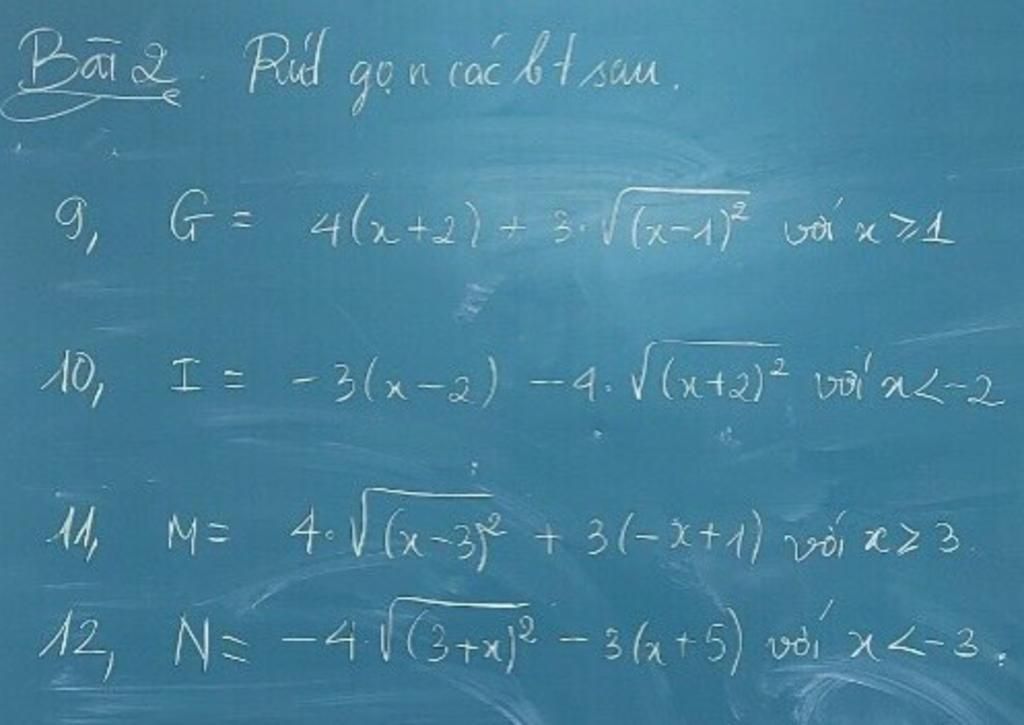 Bài 2. Rút gọn các bt sau.
9, G = 4(x+2) + 3.√(x-1)² với x ≥ 1
10, I = -3(x-2) - 4.√(x+2)² với x < -2
11, M = 4.√(x-3)² + 3(-x+1) với x ≥ 3.
12, N = -4.√(3+x)² - 3(x+5) với x < -3.